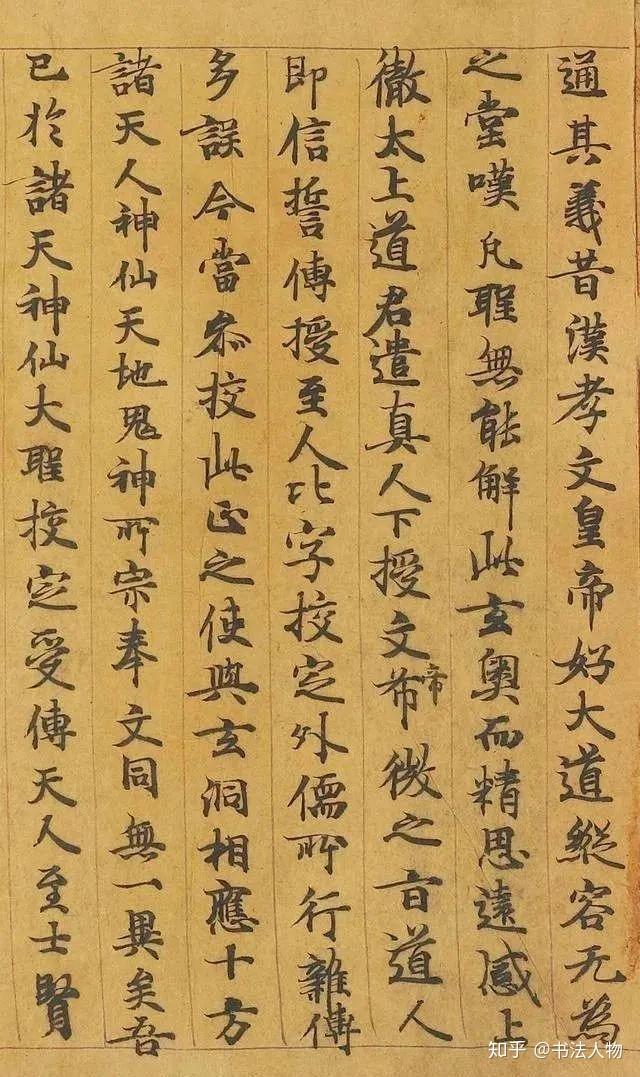 通其義昔漢孝文皇帝好大道縱容无為
之堂嘆凡聖無能解此玄奧而精思遠感上
徹太上道君遣真人下授文希帝微之旨道人
即信誓傳授至人比字挍定外儒所行雜傳
多誤今當叅挍此正之使與玄洞相應十方
諸天人神仙天地鬼神所宗奉文同無一異矣吾
已於諸天神仙大聖挍定受傳天人至士賢
知乎 @书法人物